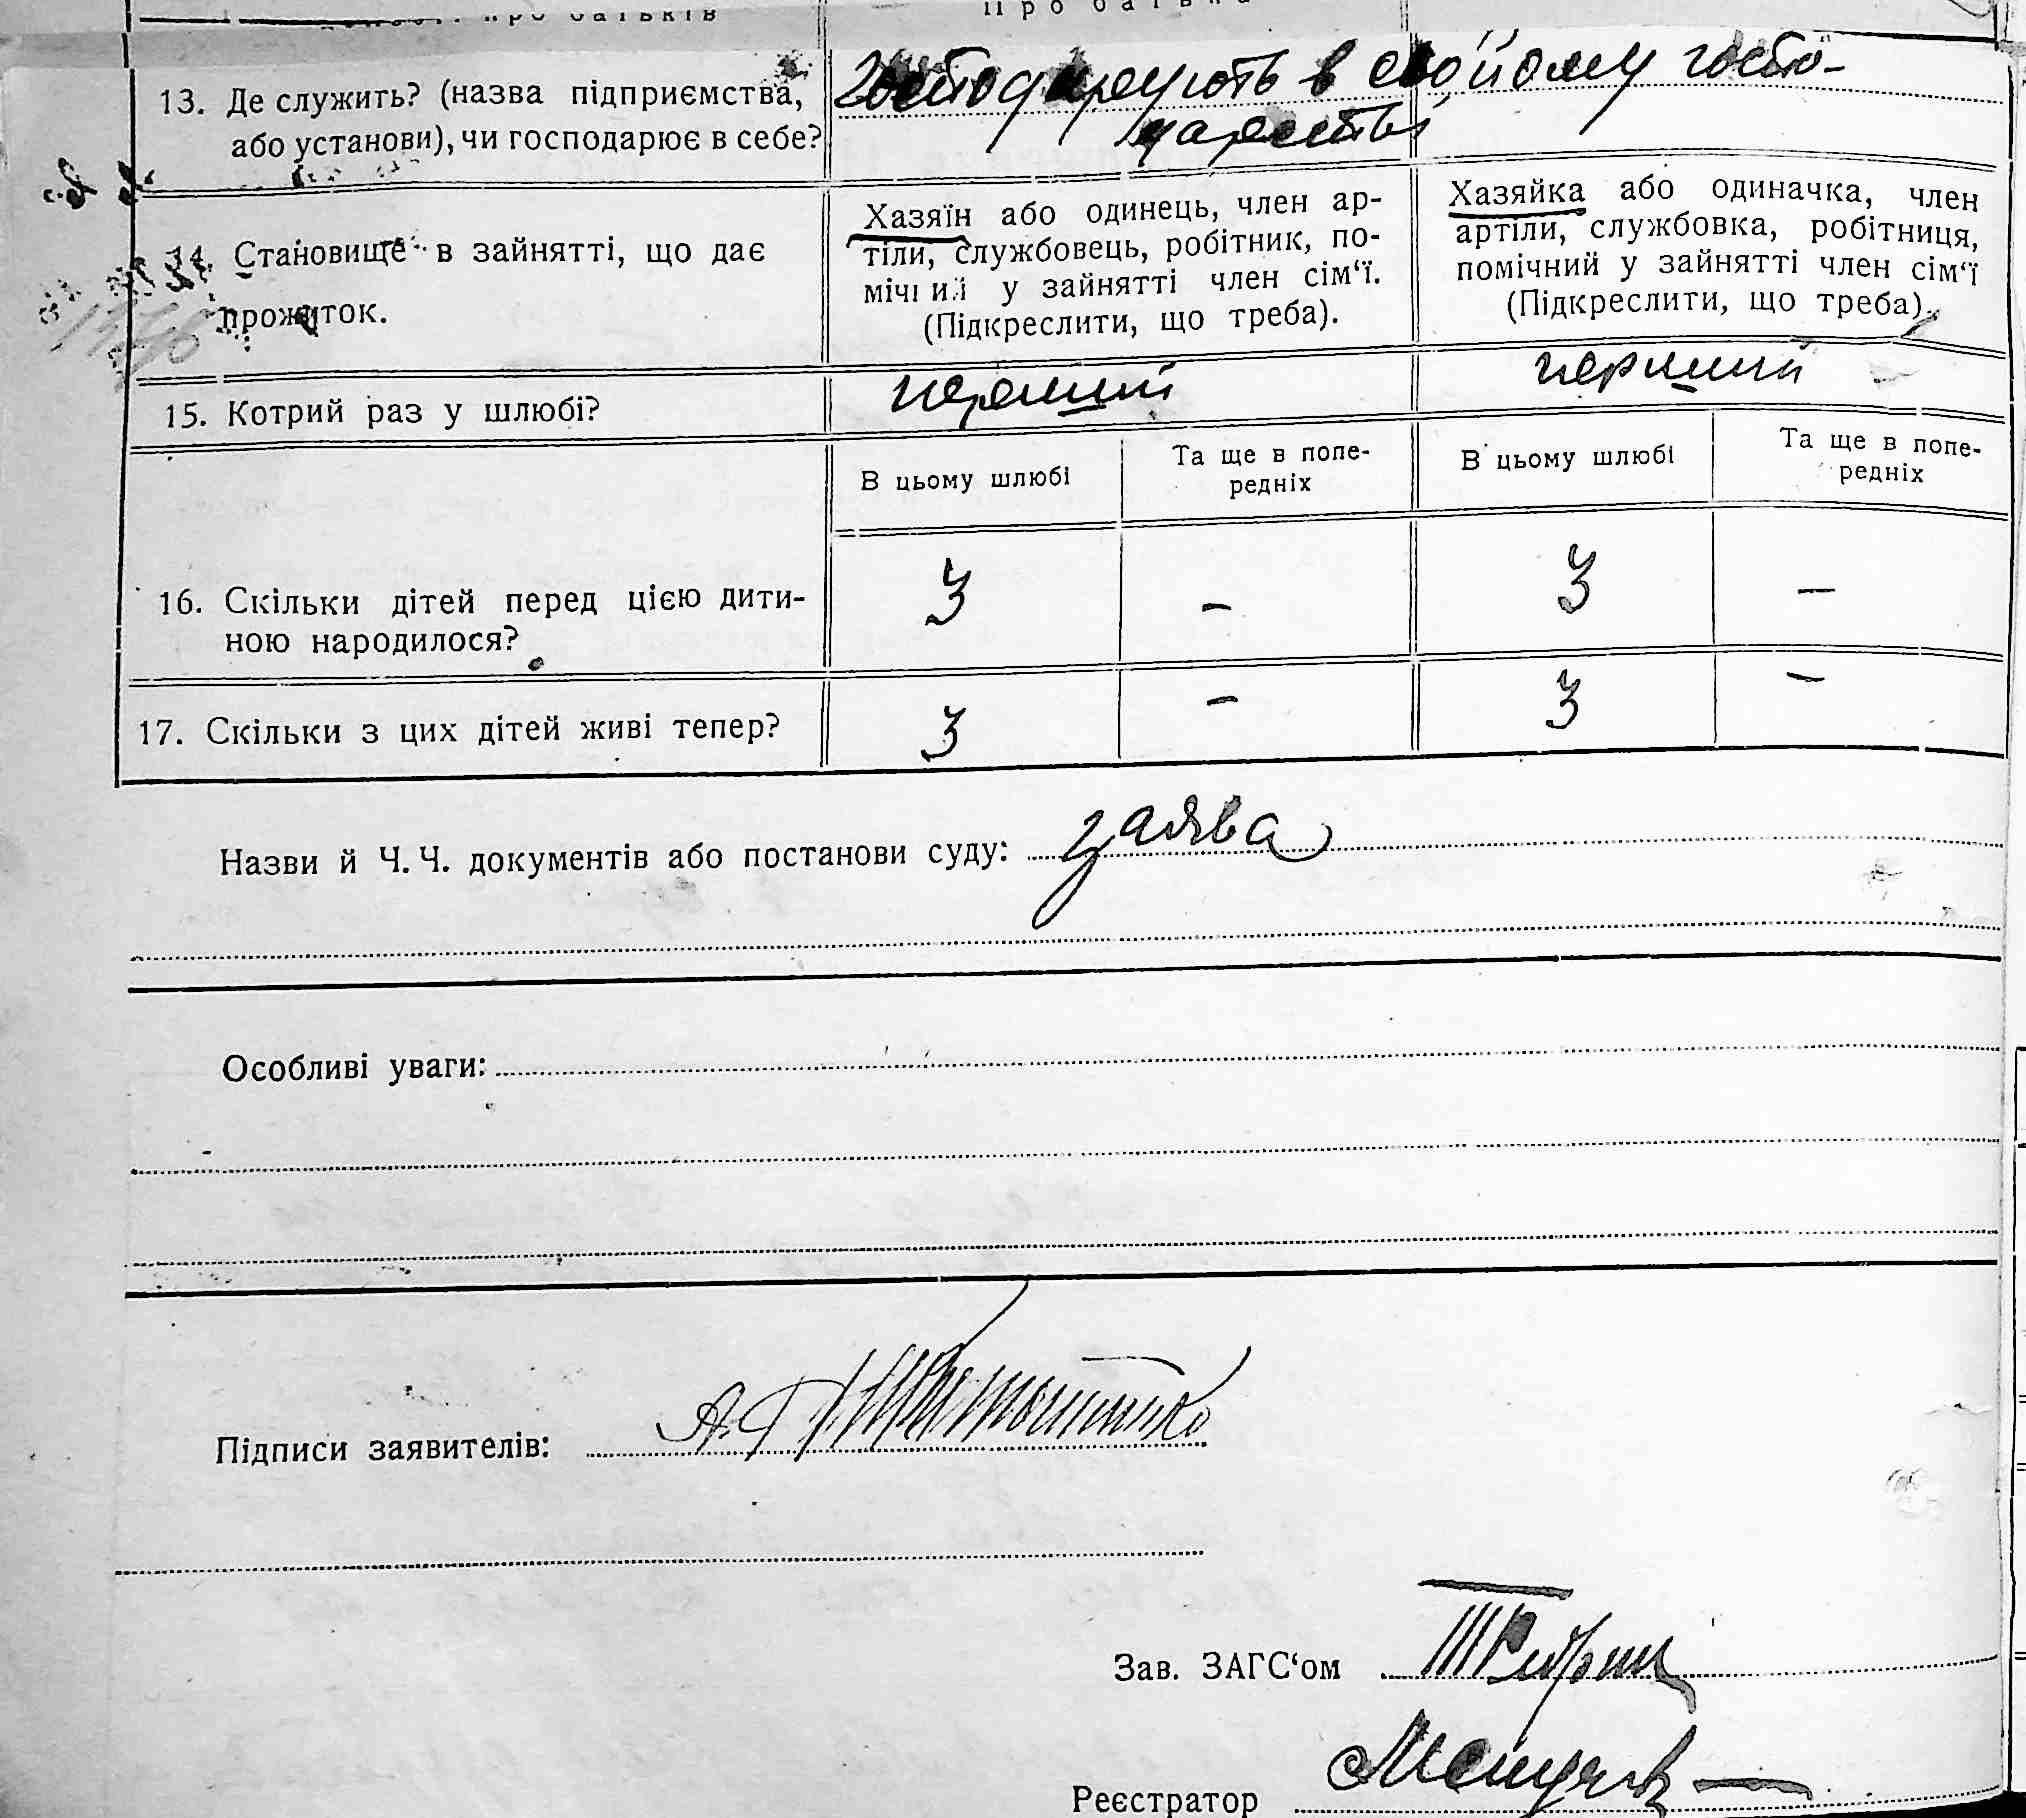 про батьків
Про батька
13. Де служить? (назва підприємства,
або установи), чи господарює в себе?
Господарують в свойому госпо-
дарстві
14. Становище в зайнятті, що дає
прожиток.
Хазяїн або одинець, член ар-
тіли, службовець, робітник, по-
мічний у зайнятті член сім‘ї.
(Підкреслити, що треба).
Хазяйка або одиначка, член
артіли, службовка, робітниця,
помічний у зайнятті член сім‘ї
(Підкреслити, що треба).
15. Котрий раз у шлюбі?
перший
перший
В цьому шлюбі
Та ще в попе-
редніх
В цьому шлюбі
Та ще в попе-
редніх
16. Скільки дітей перед цією дити-
ною народилося?
3 – 3 –
17. Скільки з цих дітей живі тепер?
3 – 3 –
Назви й Ч. Ч. документів або постанови суду: заява
Особливі уваги:
Підписи заявителів:
Зав. ЗАГС‘ом
Реєстратор